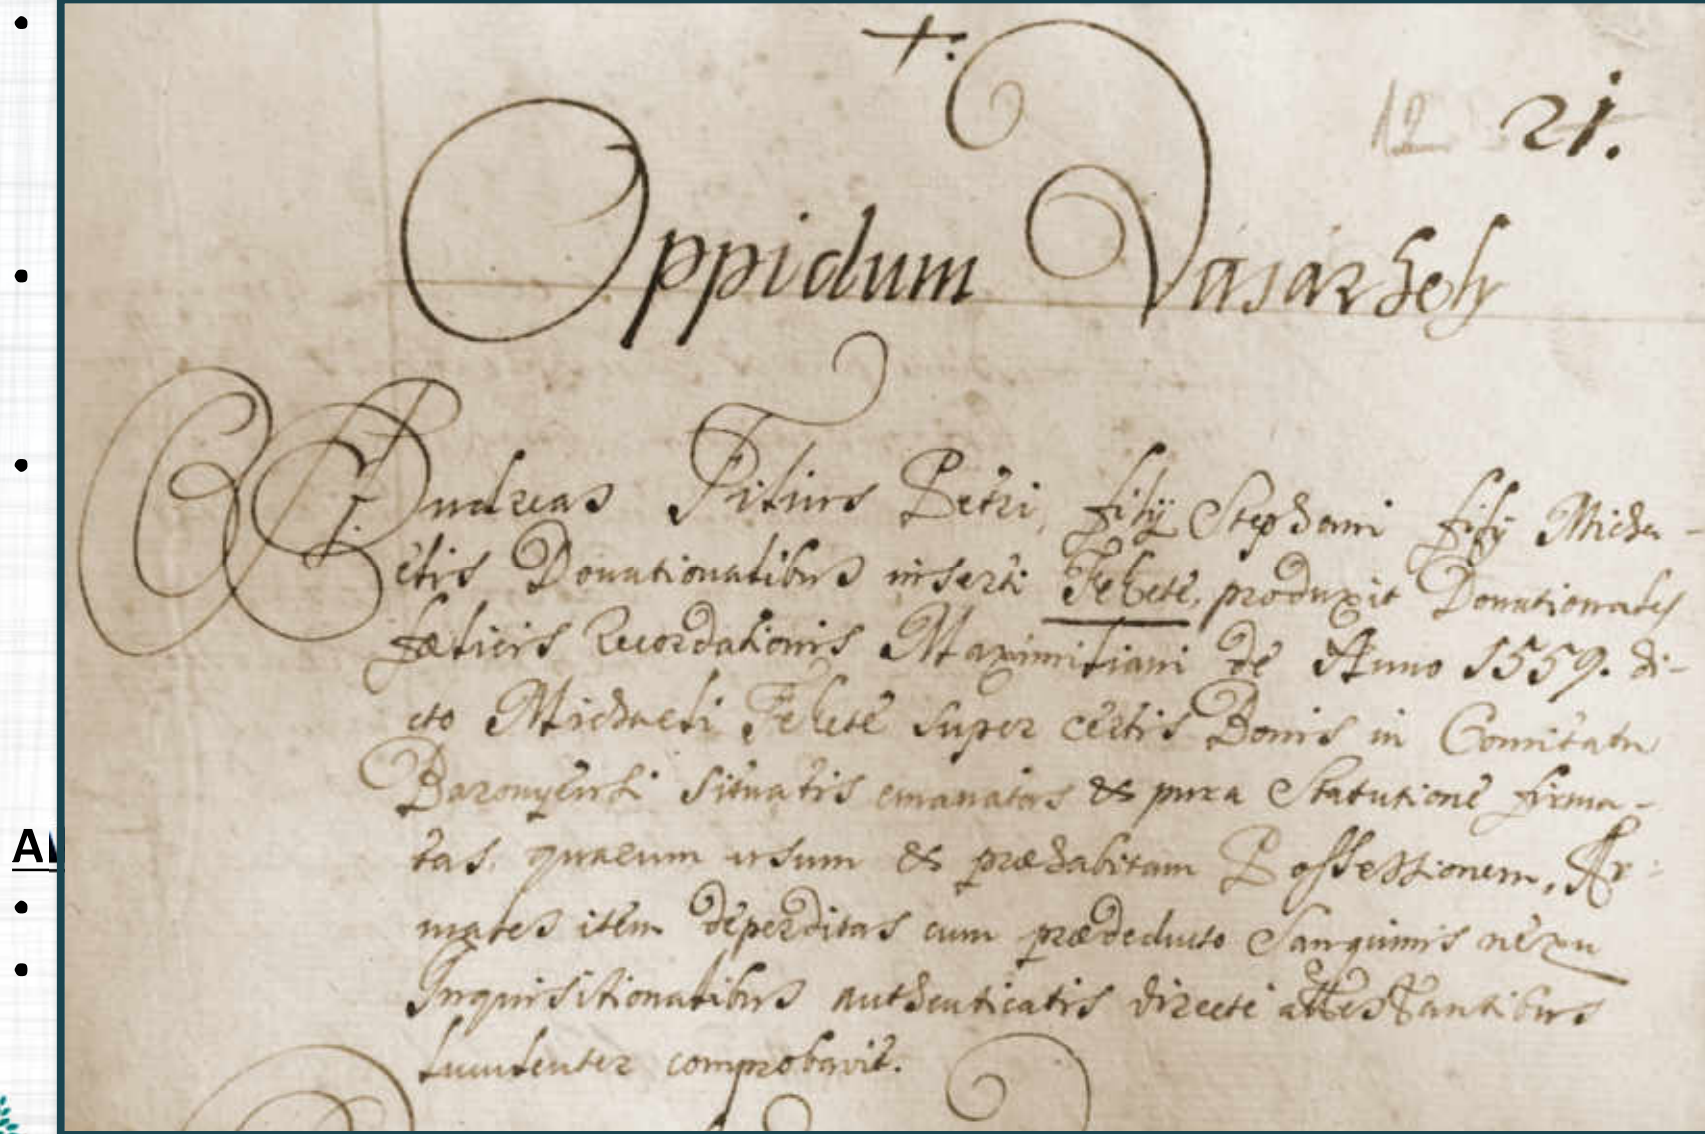 +:
12 21.
Oppidum Vasarhely
Andreas Filius Petri, filÿ Stephani filÿ Micha-
elis Donationalibus inserti Fekete, produxit Donationales
fælicis Recordationis Maximiliani de Anno 1559. di-
cto Michaeli Fekete super certis Bonis in Comitatu
Baronyensi situatis emanatas & pura Statutione firma-
tas. quarum usum & præhabitam Possessionem, Ar-
males item deperditas cum prædeducto Sanguinis nexu
Inquisitionalibus authenticatis directe attestantibus
luculenter comprobavit.
A